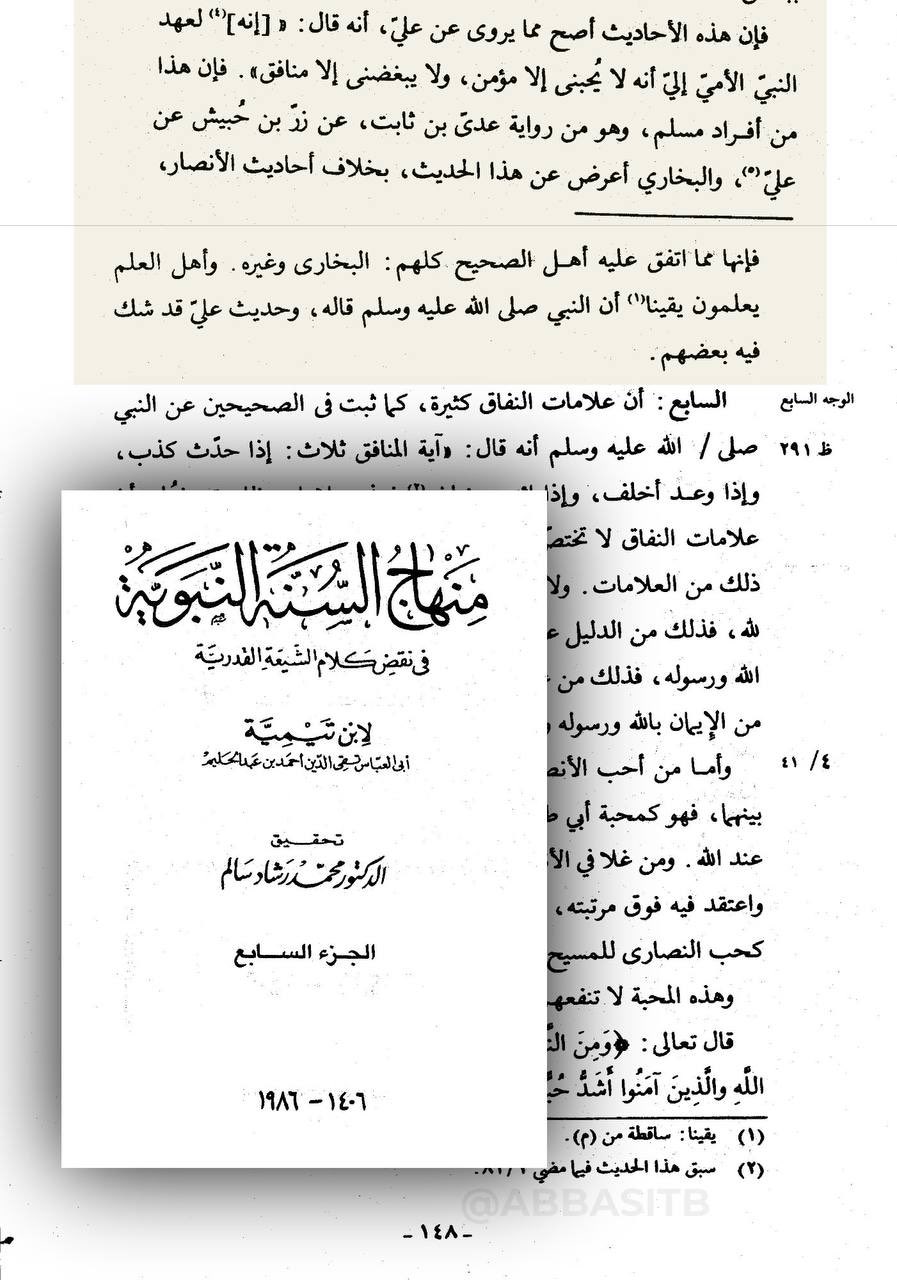 فإن هذه الأحاديث أصح مما يروى عن عليّ، أنه قال: « [إنه](٤) لعهد
النبيّ الأميّ إليّ أنه لا يُحبنى إلا مؤمن، ولا يبغضنى إلا منافق» . فإن هذا
من أفـراد مسلم، وهو من رواية عدىّ بن ثابت، عن زرّ بن حُبيش عن
عليّ(٥)، والبخاري أعرض عن هذا الحديث، بخلاف أحاديث الأنصار،
فإنها مما اتفق عليه أهـل الصحيح كلهم: البخارى وغيره. وأهل العلم
يعلمون يقينا(١) أن النبي صلى الله عليه وسلم قاله، وحديث عليّ قد شك
فيه بعضهم.
الوجه السابع
السابع: أن علامات النفاق كثيرة، كما ثبت فى الصحيحين عن النبي
ظ ٢٩١
صلى / الله عليه وسلم أنه قال: «آية المنافق ثلاث: إذا حدّث كذب،
وإذا وعـد أخلف، وإذا
علامات النفاق لا
ذلك من العلامات. ولا
لله، فذلك من الدليل
الله ورسوله، فذلك من
من الإيمان بالله ورسوله
٤/ ٤١
وأمـا من أحب
بينهما، فهو كمحبة أبي
عند الله. ومن غلا في
واعتقد فيه فوق مرتبته،
كحب النصارى للمسيح
وهذه المحبة لا
قال تعالى: ﴿وَمِنَ
اللَّهِ والَّذِينَ آمَنُوا أَشَدُّ
(١) يقينا: ساقطة من (م).
(٢) سبق هذا الحديث فيما مضى
- ١٤٨ -
مِنهَاجُ السُّنَّةِ النَّبَوِيَّةِ
فى نقضِ كَلام الشّيعَةِ القَدريَّة
لابن تَيْمِيَّة
أبى العبّاس تقى الدّين أحمَد بن عبد الحَليم
تحقيق
الدكتور محمّد رَشاد سَالم
الجزء السابع
١٤٠٦ - ١٩٨٦
@ABBASITB